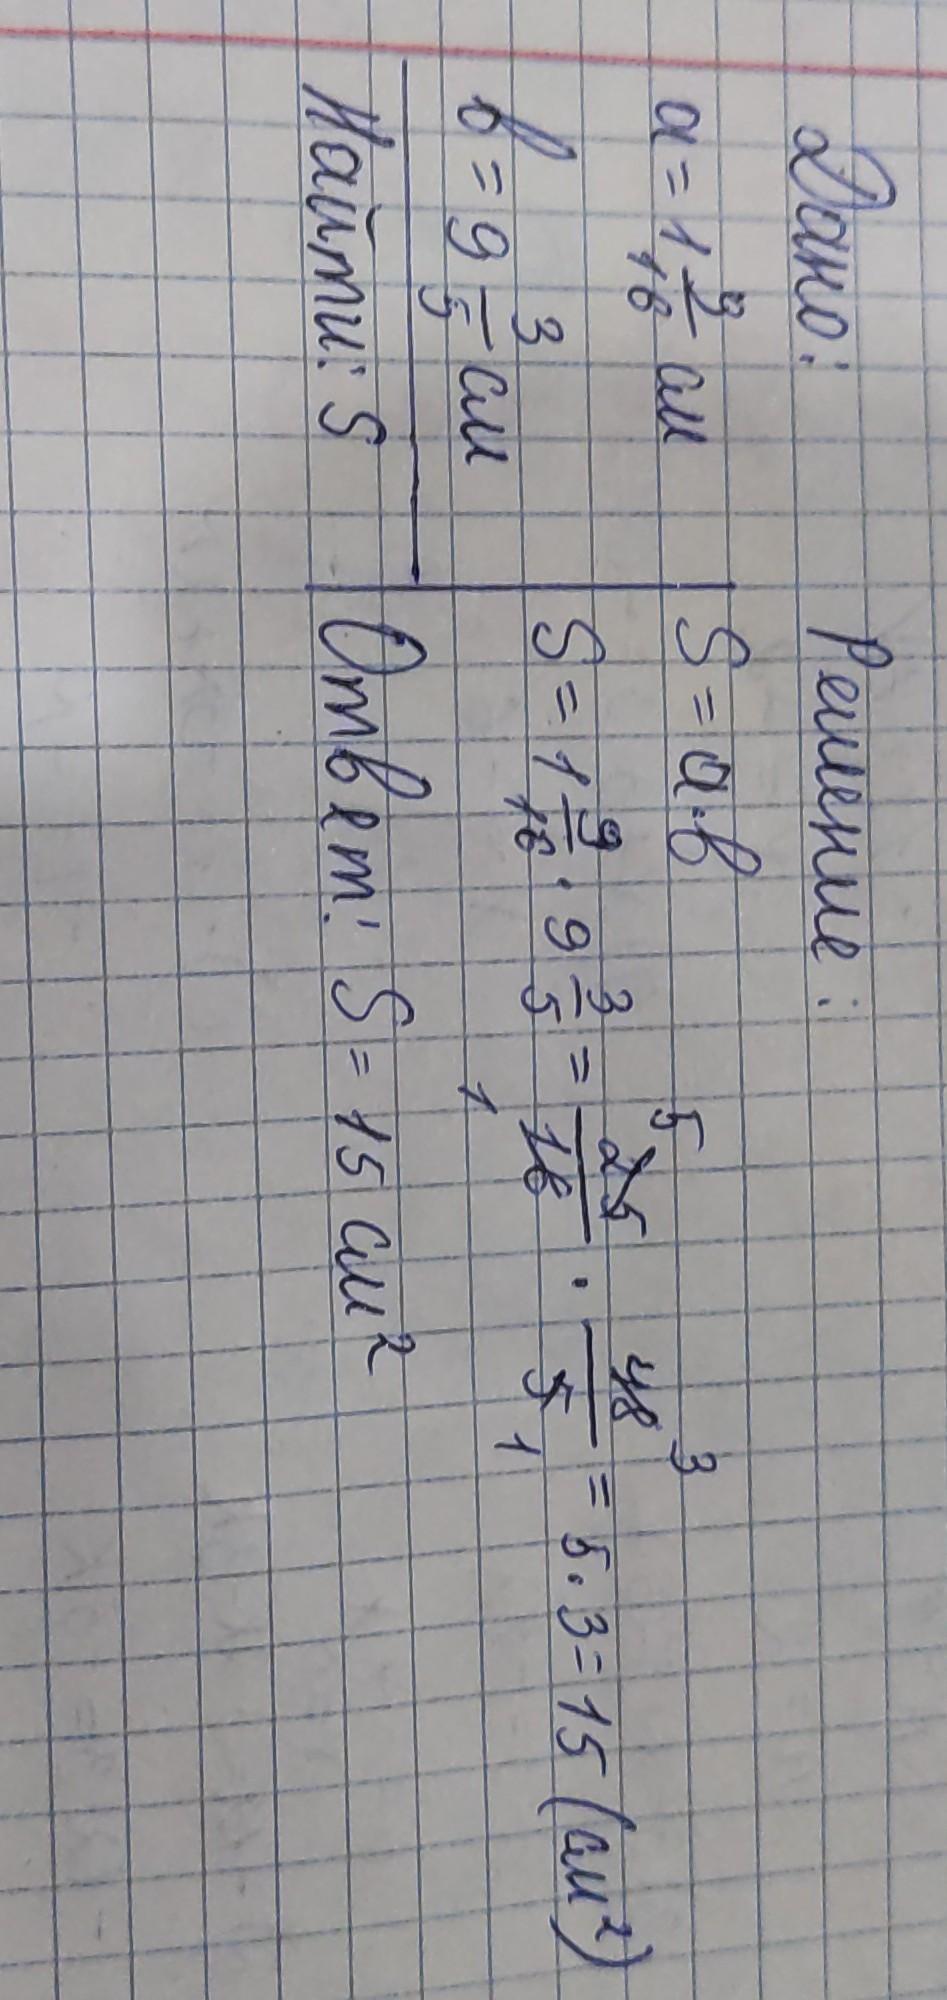 Дано:
a = 1 9/16 см
в = 9 3/5 см
Найти: S
Решение:
S = a · в
S = 1 9/16 · 9 3/5 = 25/16 · 48/5 = 5 · 3 = 15 (см²)
5 3
1 1
Ответ: S = 15 см²